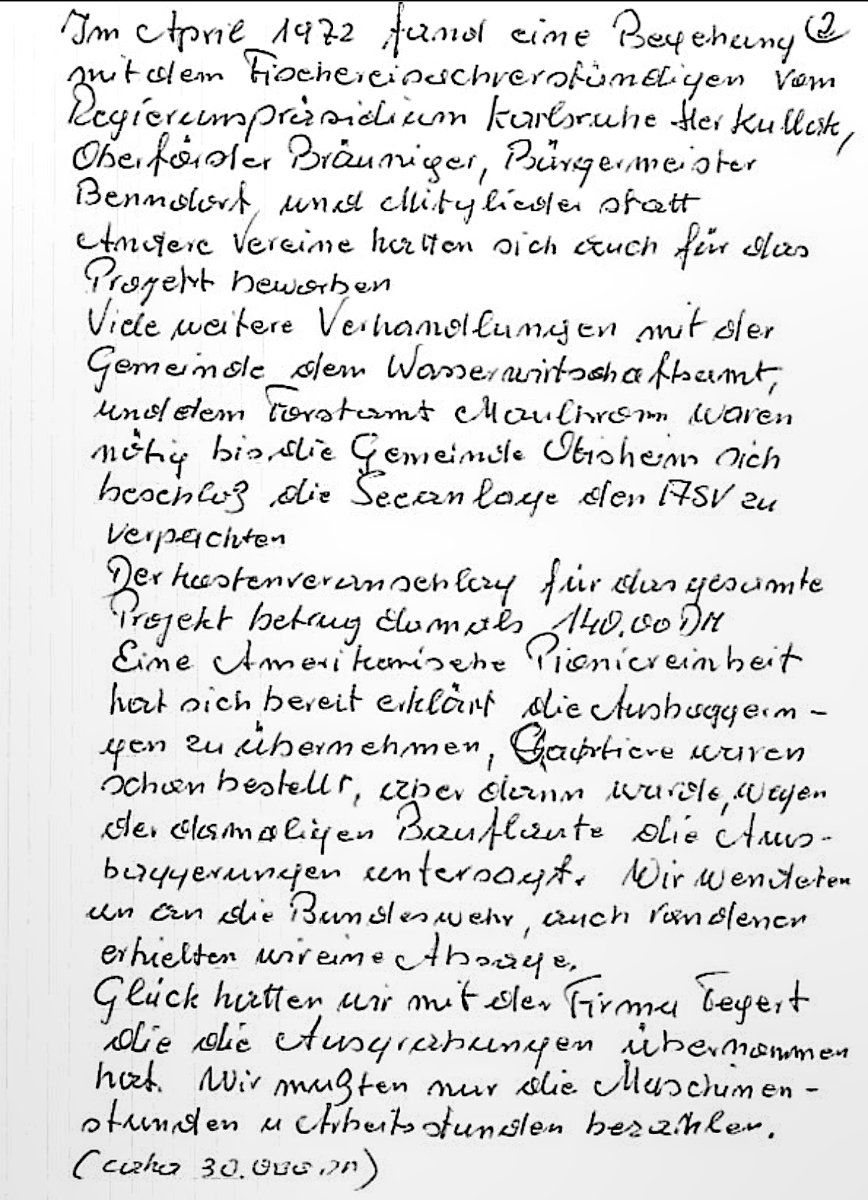 Im April 1972 fand eine Begehung (2
mit dem Fischereisachverständigen vom
Regierunspräsidium Karlsruhe Her Kullak,
Oberförster Bräuniger, Bürgermeister
Benndorf, und Mitglieder statt
Andere Vereine hatten sich auch für das
Projekt beworben
Viele weitere Verhandlungen mit der
Gemeinde dem Wasserwirtschaftsamt,
und dem Forstamt Maulbronn waren
nötig bis die Gemeinde Ötisheim sich
beschloß die Seeanlage den ASV zu
verpachten
Der Kostenveranschlag für das gesamte
Projekt betrug damals 140.00 DM
Eine Amerikanische Pioniereinheit
hat sich bereit erklärt die Ausbaggerun-
gen zu übernehmen, Quartiere waren
schon bestellt, aber dann wurde, wegen
der damaligen Bauflaute die Aus-
baggerungen untersagt. Wir wendeten
un an die Bundeswehr, auch von denen
erhielten wir eine Absage.
Glück hatten wir mit der Firma Tegert
die die Ausgrabungen übernommen
hat. Wir mußten nur die Maschinen-
stunden u Arbeitsstunden bezahlen.
(cirka 30.000 DM)